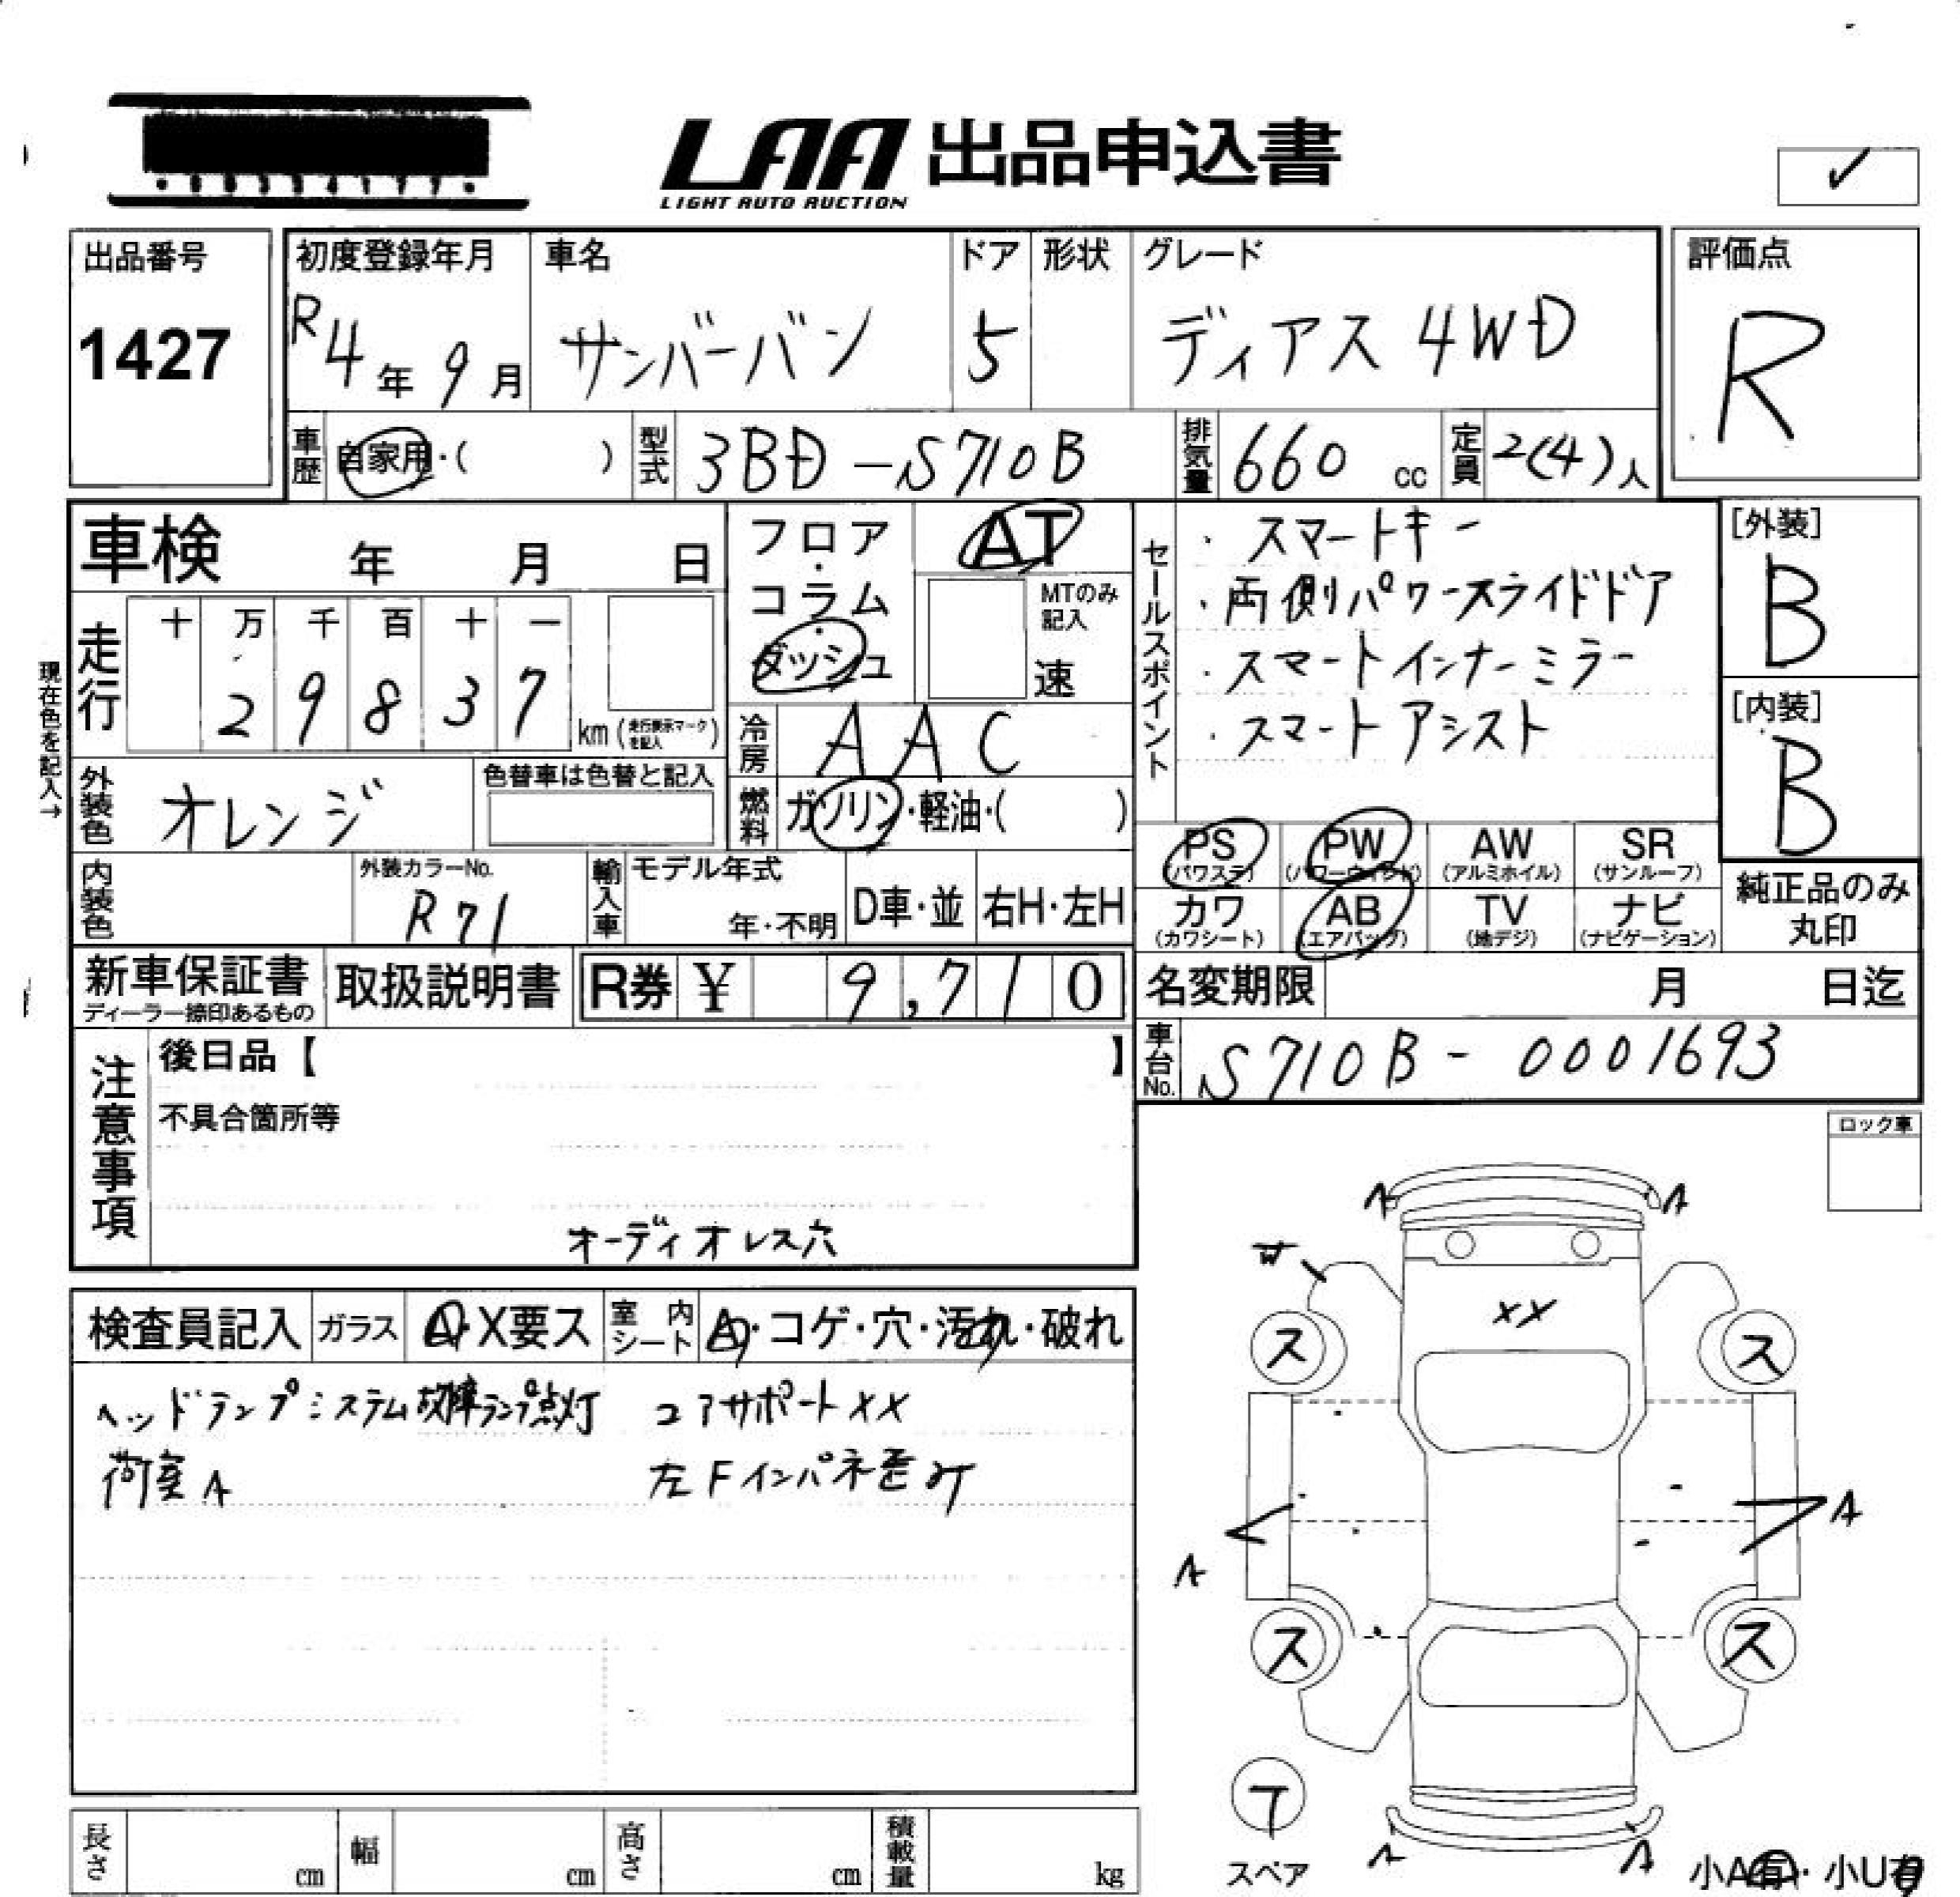 LAA 出品申込書
LIGHT AUTO AUCTION
✓
出品番号
1427
初度登録年月
R4年 9月
車名
サンバーバン
ドア
5
形状
グレード
ディアス 4WD
評価点
R
車歴
自家用・( )
型式
3BD-S710B
排気量
660 cc
定員
2(4)人
車検 年 月 日
現在色を記入→
走行
十 万 千 百 十 一
2 9 8 3 7
km(走行表示マークを記入)
フロア・コラム・ダッシュ
AT
MTのみ記入
速
冷房
AAC
燃料
ガソリン・軽油・( )
外装色
オレンジ
色替車は色替と記入
内装色
外装カラーNo.
R71
輸入車
モデル年式
年・不明
D車・並
右H・左H
セールスポイント
・スマートキー
・両側パワースライドドア
・スマートインナーミラー
・スマートアシスト
[外装]
B
[内装]
B
PS
(パワステ)
PW
(パワーウィンド)
AW
(アルミホイル)
SR
(サンルーフ)
カワ
(カワシート)
AB
(エアバッグ)
TV
(地デジ)
ナビ
(ナビゲーション)
純正品のみ
丸印
新車保証書
ディーラー捺印あるもの
取扱説明書
R券 ¥ 9,710
名変期限 月 日迄
車台No.
S710B-0001693
注意事項
後日品【 】
不具合箇所等
オーディオレス穴
ロック車
検査員記入
ガラス
A・X要ス
室内シート
A・コゲ・穴・汚れ・破れ
ヘッドランプシステム故障ランプ点灯
コアサポートXX
荷室A
左Fインパネ歪み
A A
W
XX
ス ス
A
A
ス ス
スペア
A A
小A有・小U有
長さ cm
幅 cm
高さ cm
積載量 kg